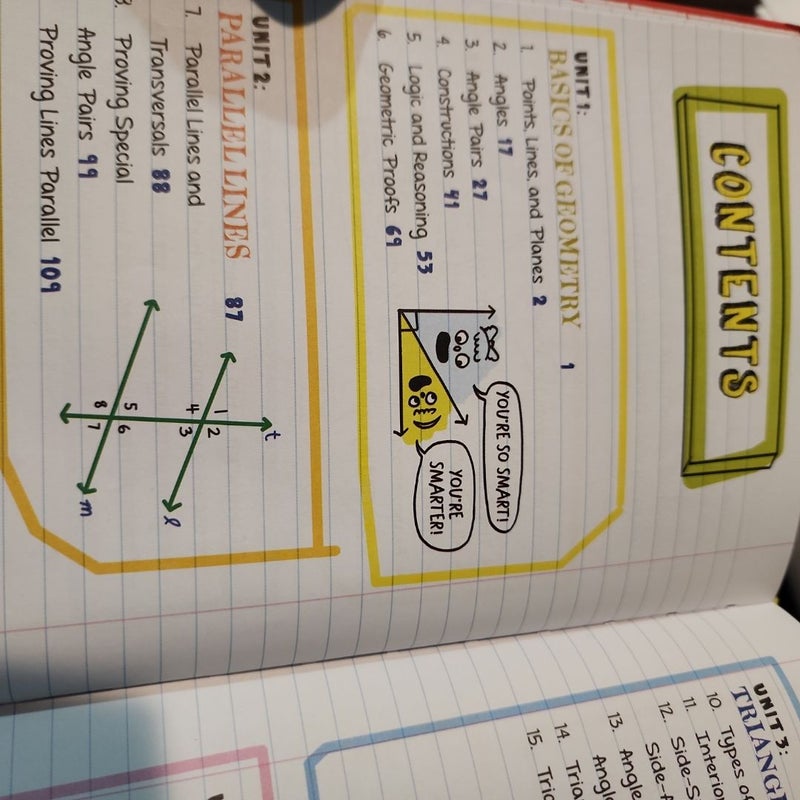 CONTENTS
UNIT 1:
BASICS OF GEOMETRY 1
1. Points, Lines, and Planes 2
2. Angles 17
3. Angle Pairs 27
4. Constructions 41
5. Logic and Reasoning 53
6. Geometric Proofs 69
YOU'RE SO SMART!
YOU'RE
SMARTER!
UNIT 2:
PARALLEL LINES 87
7. Parallel Lines and
Transversals 88
8. Proving Special
Angle Pairs 99
Proving Lines Parallel 109
t
1
2
4
3
l
5
6
8
7
m
UNIT 3:
10. Types of
11. Side-S
12. Side-
13. Angle
14.
15.